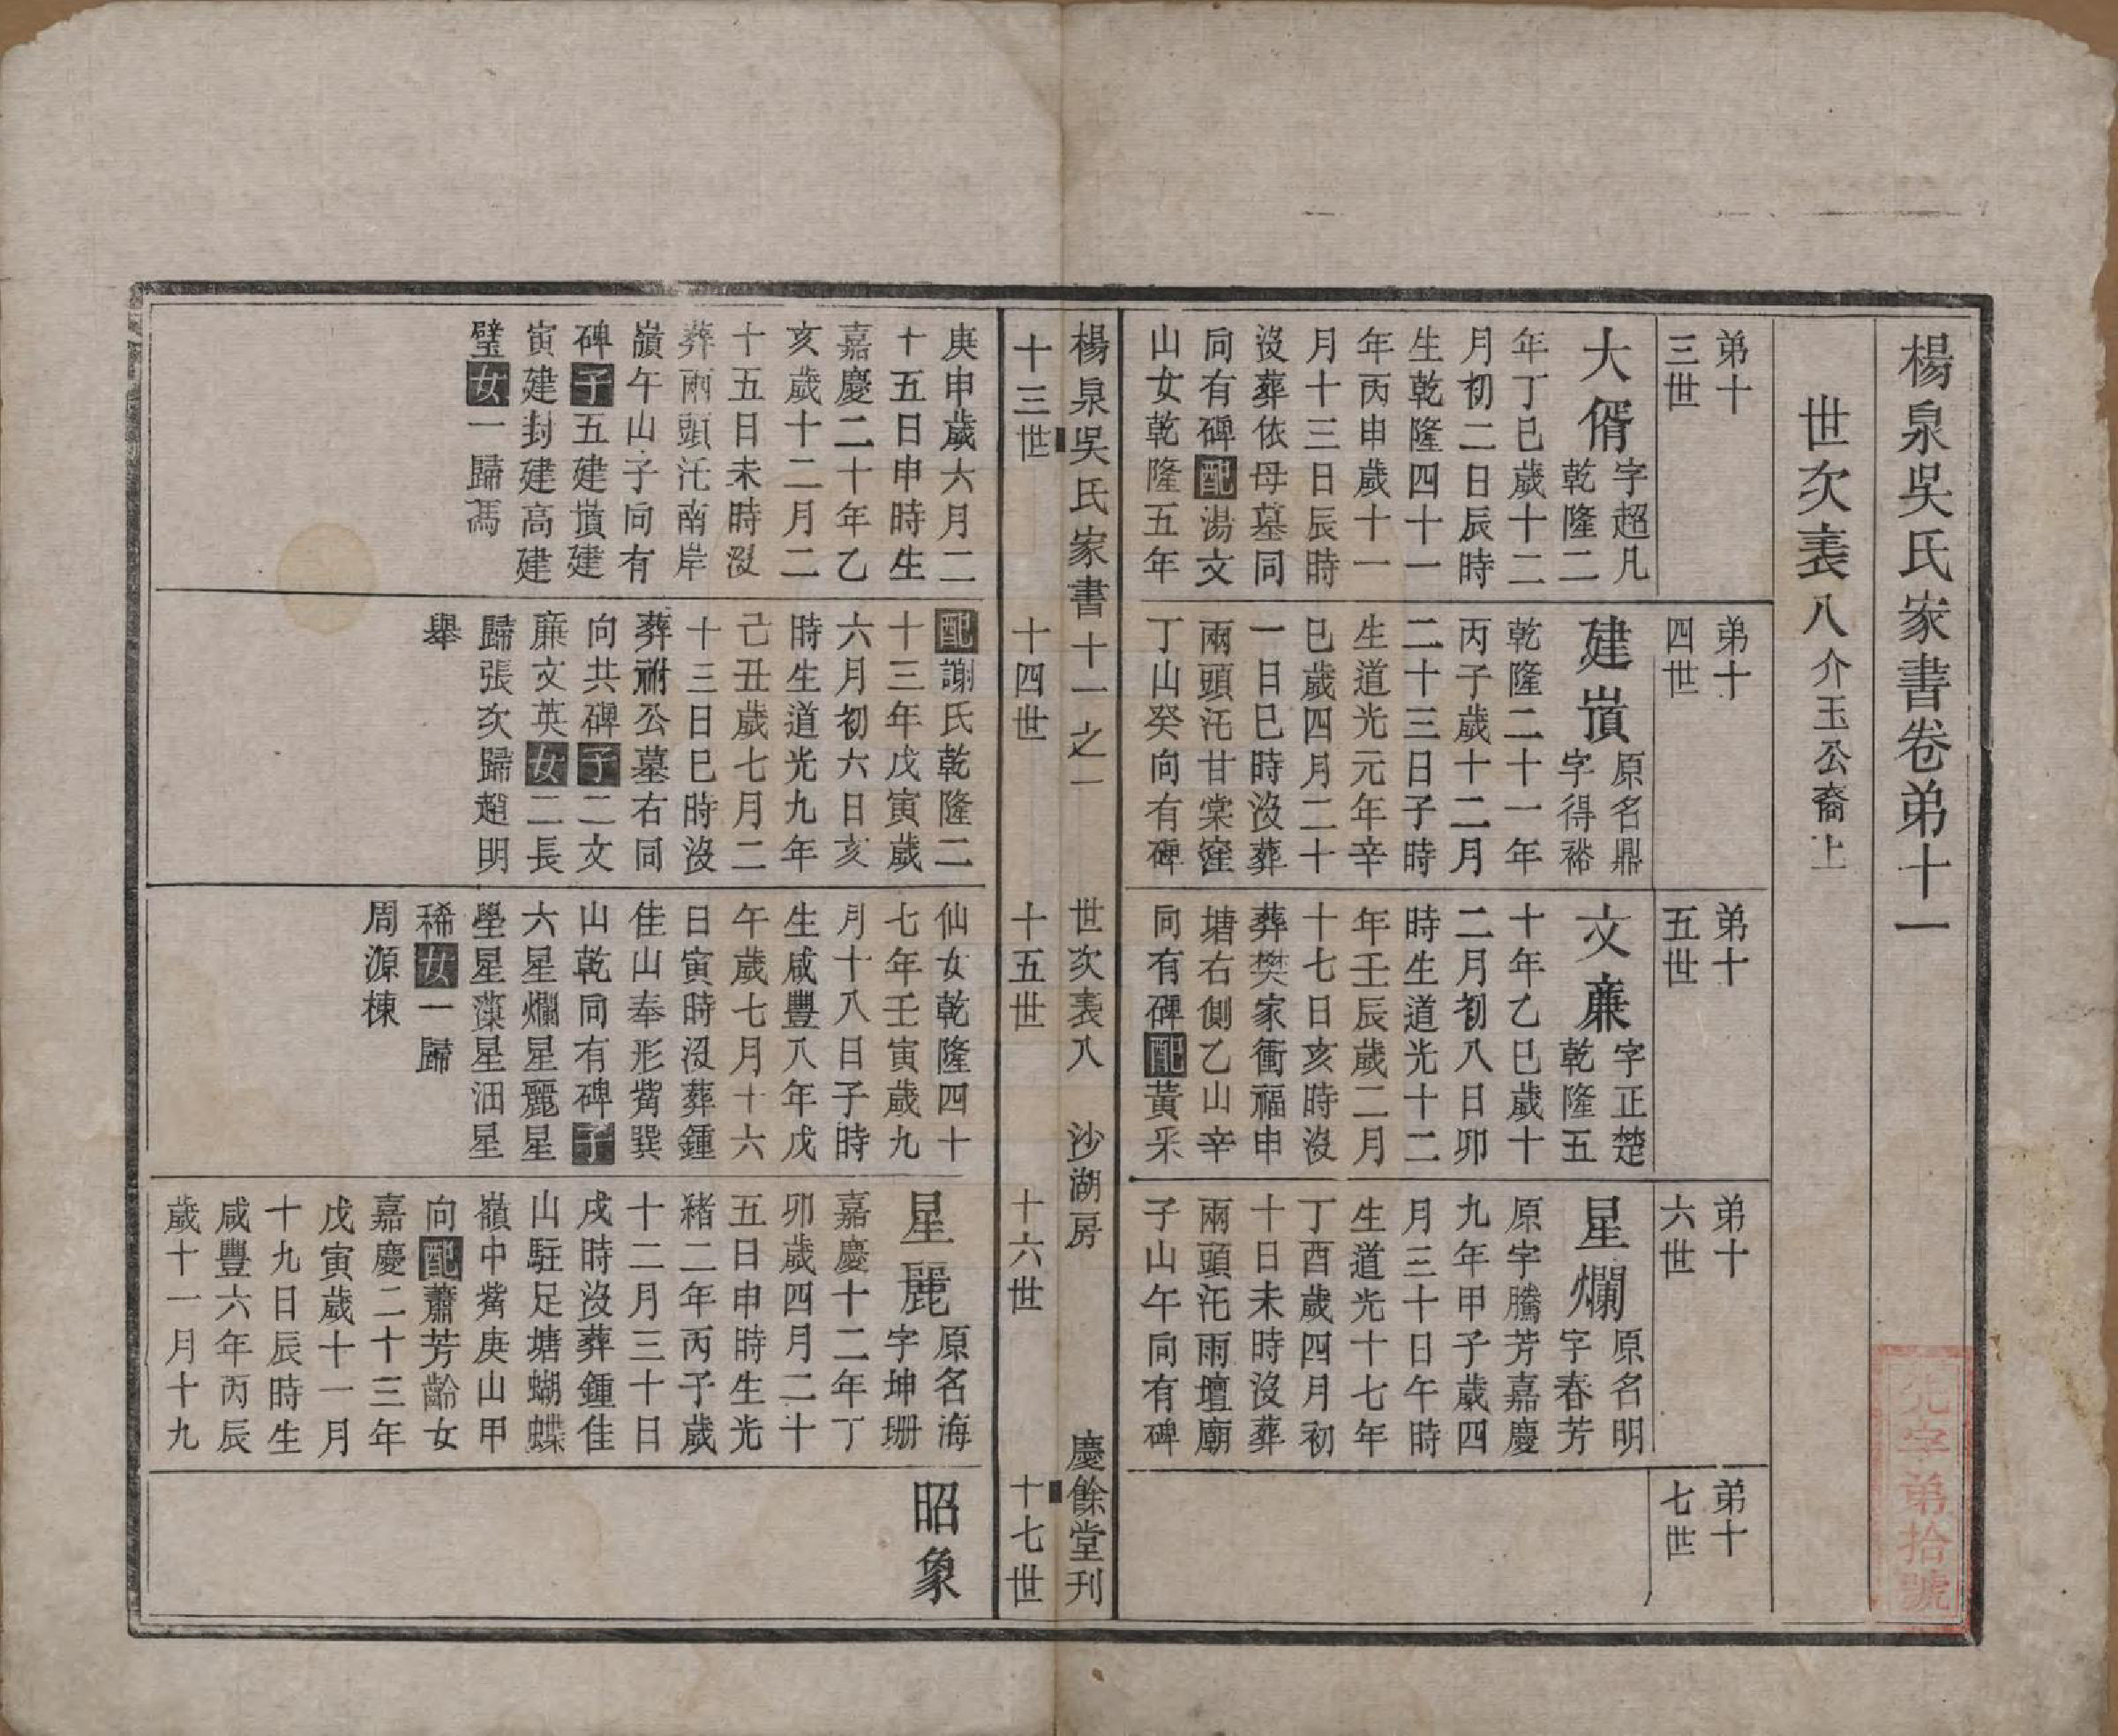 楊泉吳氏家書卷弟十一
世次表八 介玉公裔上
弟十三世
大偦 字超凡乾隆二
年丁巳歲十二
月初二日辰時
生乾隆四十一
年丙申歲十一
月十三日辰時
沒葬依母墓同
向有碑配湯文
山女乾隆五年
弟十四世
建嵿 原名鼎字得裕
乾隆二十一年
丙子歲十二月
二十三日子時
生道光元年辛
巳歲四月二十
一日巳時沒葬
兩頭汑甘棠窪
丁山癸向有碑
弟十五世
文亷 字正楚乾隆五
十年乙巳歲十
二月初八日卯
時生道光十二
年壬辰歲二月
十七日亥時沒
葬樊家衝福申
塘右側乙山辛
向有碑配黃釆
弟十六世
星爛 原名明字春芳
原字騰芳嘉慶
九年甲子歲四
月三十日午時
生道光十七年
丁酉歲四月初
十日未時沒葬
兩頭汑雨壇廟
子山午向有碑
弟十七世
楊泉吳氏家書十一之一 世次表八 沙湖房 慶餘堂刊
十三世 十四世 十五世 十六世 十七世
庚申歲六月二
十五日申時生
嘉慶二十年乙
亥歲十二月二
十五日未時沒
葬兩頭汑南岸
嶺午山子向有
碑子五建嵿建
寅建封建高建
璧女一歸馮
配謝氏乾隆二
十三年戊寅歲
六月初六日亥
時生道光九年
己丑歲七月二
十三日巳時沒
葬祔公墓右同
向共碑子二文
亷文英女二長
歸張次歸趙明
舉
仙女乾隆四十
七年壬寅歲九
月十八日子時
生咸豐八年戊
午歲七月十六
日寅時沒葬鍾
佳山奉形觜巽
山乾向有碑子
六星爛星麗星
學星藻星沺星
稀女一歸
周源棟
星麗 原名海字坤珊
嘉慶十二年丁
卯歲四月二十
五日申時生光
緒二年丙子歲
十二月三十日
戌時沒葬鍾佳
山駐足塘蝴蝶
嶺中觜庚山甲
向配蕭芳齡女
嘉慶二十三年
戊寅歲十一月
十九日辰時生
咸豐六年丙辰
歲十一月十九
昭象
元字弟拾號